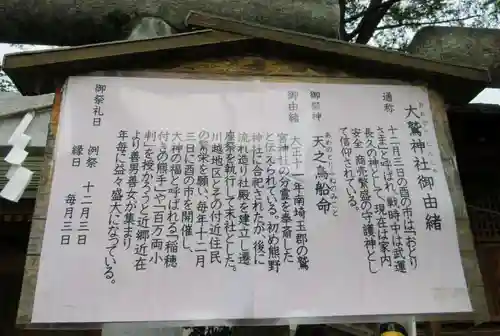 大鷲神社御由緒
おおとり
通称 十二月三日の酉の市は「おのり
さま」と呼ばれ、戦時中は武運
長久の神とし、現在は家内
安全、商売繁盛の守護神とし
て信仰されている。
御祭神 天之鳥船命
御由緒 大正十一年南埼玉郡の鷲
宮神社の分霊を奉斎した
と伝えられている。初め熊野
神社に合祀されたが、後に
流れ造り社殿を建立し遷
座祭を執行して末社とした。
川越地区とその付近住民
の繁栄を願い、毎年十二月
三日に酉の市を開催し、
大神の福と呼ばれる「稲穂
付きの熊手」や「百万両小
判」を授かろうと近郷近在
より善男善女が集まり
年毎に益々盛大になっている。
御祭礼日 例祭 十二月三日
縁日 毎月三日